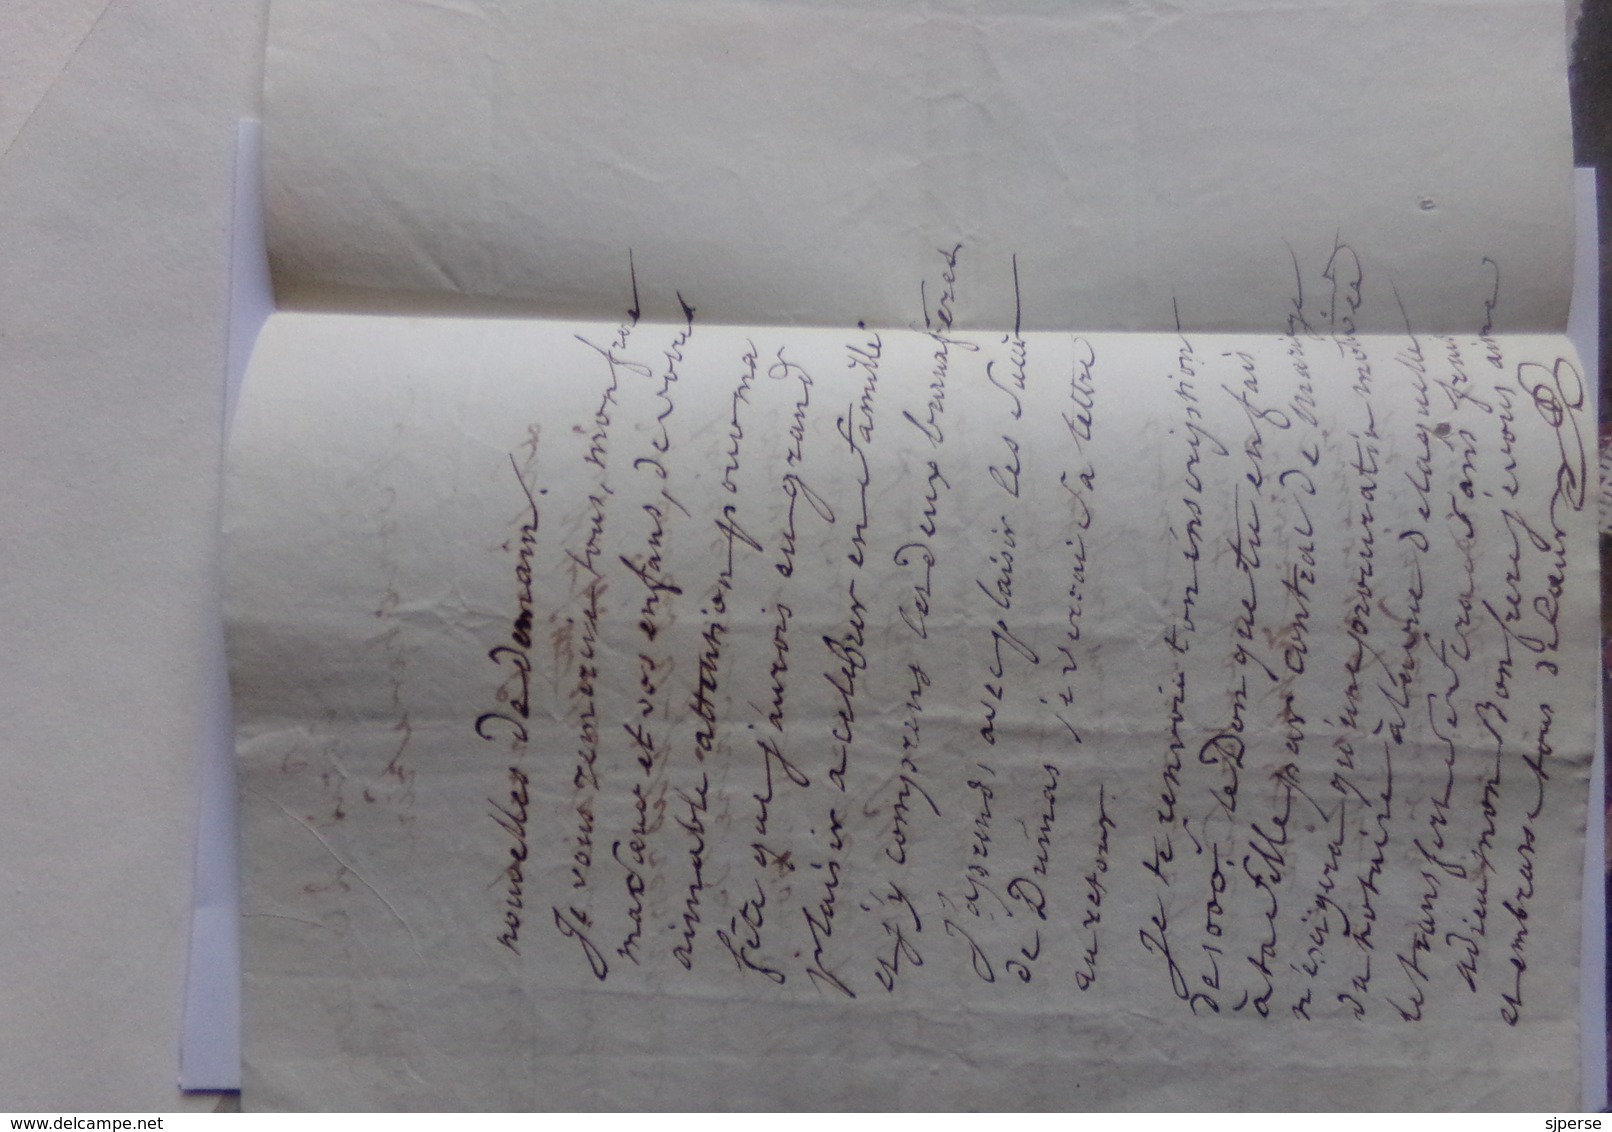 nouvelles de demain.
Je vous remercie tous, mon frere
ma sœur et vos enfans, de votre
aimable attention pour ma
fête que j'aurois eu grand
plaisir a celebrer en famille
et j'y comprens les deux beaufreres
J'aprens, avec plaisir les
de Dumas je verrai sa lettre
au retour.
Je te renvoie ton inscription
de 1000. le Don que tu en fais
à ta fille par contrat de mariage
n'éxigera qu'une procuration motivée
du notaire à laquelle
le transfert sera sans frais
adieu mon Bon frere je vous aime
et embrasse tous de Cœur
www.delcampe.net
sjperse